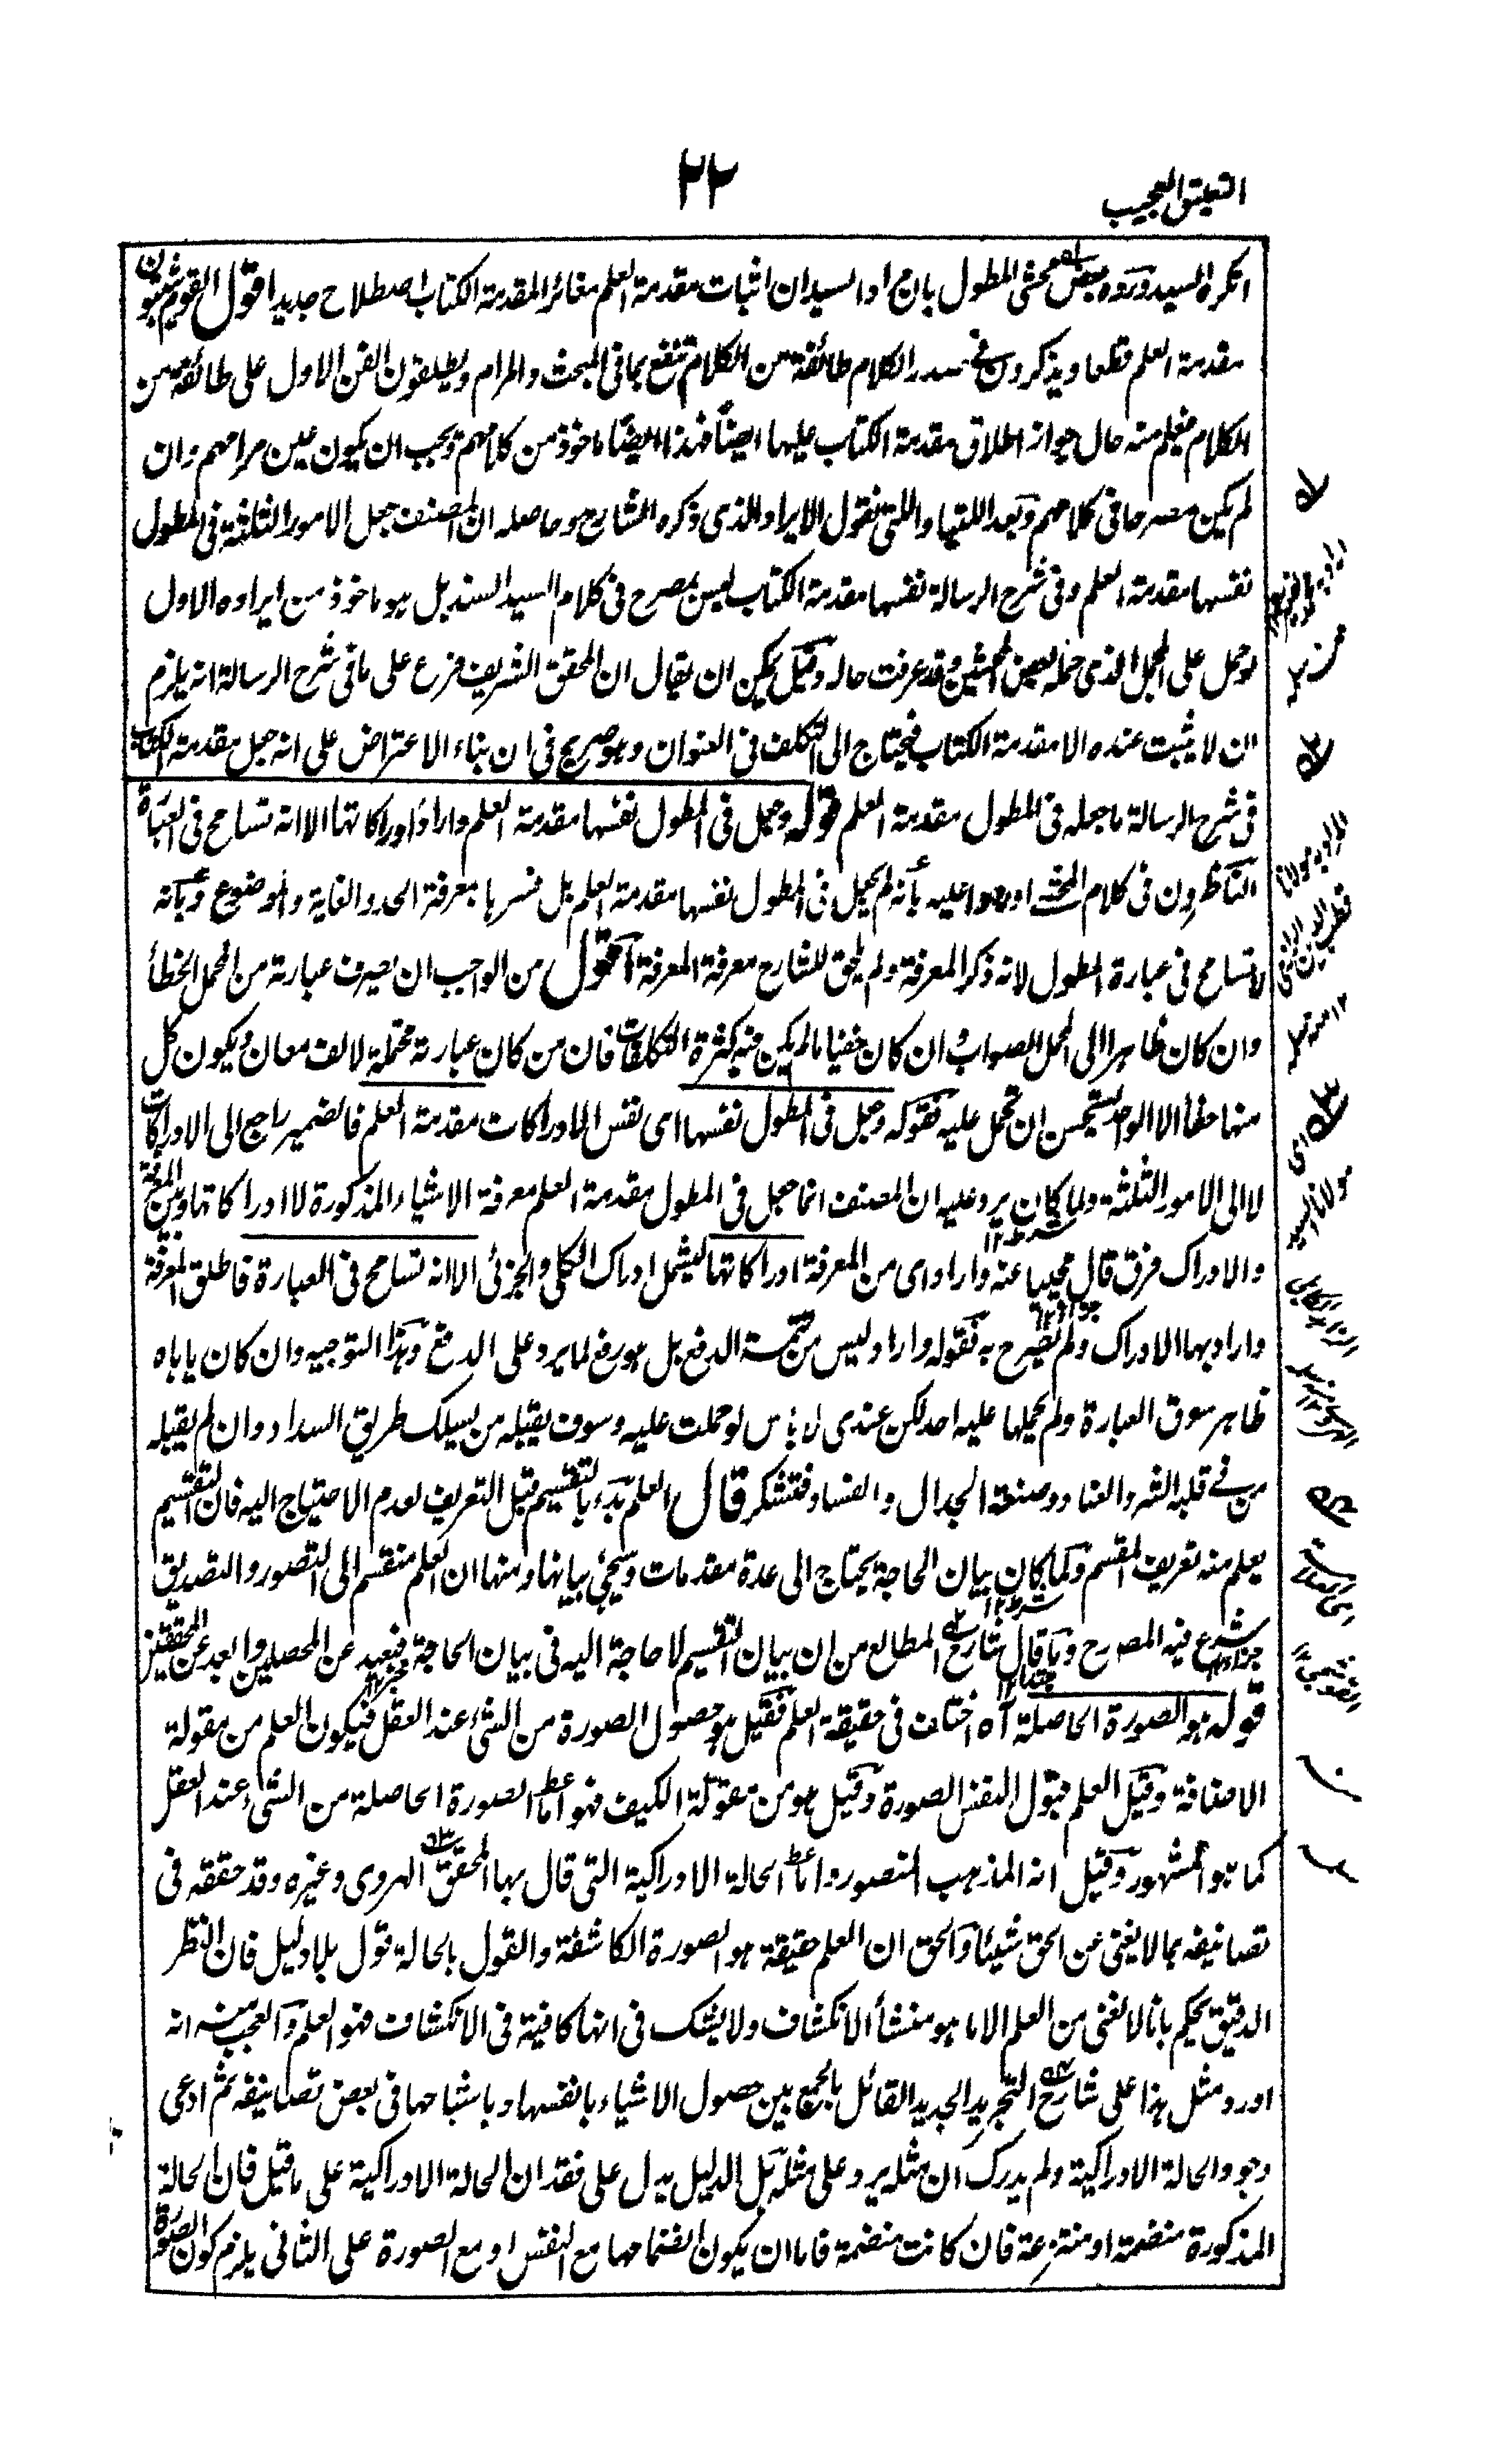 التعليق العجيب
٢٢
انكره السيد ورده بعض محشى المطول بان مراد السيد ان اثبات مقدمة العلم مغائر المقدمة الكتاب اصطلاح جديد اقول القوم يثبتون
مقدمة العلم قطعا ويذكرون فى صدر الكلام طائفة من الكلام تنفع بها فى المبحث والمرام ويطلقون الفن الاول على طائفة من
الكلام فيعلم منه حال جواز اطلاق مقدمة الكتاب عليها ايضاً فهذا ايضًا ماخوذ من كلامهم ويجب ان يكون عين مرامهم وان
لم يكن مصرحا فى كلامهم وبعد اللتيا والتى نقول الايراد الذى ذكره الشارح وحاصله ان المصنف جعل الامور الثلثة فى المطول
نفسها مقدمة العلم وفى شرح الرسالة نفسها مقدمة الكتاب ليس بمصرح فى كلام السيد السند بل هو ماخوذ من ايراده الاول
لو حمل على المحمل الذى حمله بعض المحشين وقد عرفت حاله وقيل يمكن ان يقال ان المحقق الشريف فرع على ما فى شرح الرسالة انه يلزم
ان لا يثبت عنده الا مقدمة الكتاب فيحتاج الى التكلف فى العنوان وهو صريح فى ان بناء الاعتراض على انه جعل مقدمة الكتاب
فى شرح الرسالة ما جعله فى المطول مقدمة العلم قوله وجعل فى المطول نفسها مقدمة العلم واراد ادراكاتها الا انه تسامح فى العبارة
الناظرون فى كلام المحشى اوردوا عليه بأنه لم يجعل فى المطول نفسها مقدمة العلم بل فسرها بمعرفة الحد والغاية والموضوع وبانه
لا تسامح فى عبارة المطول لانه ذكر المعرفة ولم يلحق للشارح معرفة المعرفة اقول من الواجب ان يصرف عبارته من المحمل الخطأ
وان كان ظاهرا الى المحمل الصواب وان كان خفيا ما لم يكن فيه كثرة التكلفات فان من كان عبارته محتملة لالف معان ويكون كل
منها خطأ الا الواحد يستحسن ان تحمل عليه فقوله وجعل فى المطول نفسها اى نفس الادراكات مقدمة العلم فالضمير راجع الى الادراكات
لا الى الامور الثلثة ولما كان يرد عليه ان المصنف انما جعل فى المطول مقدمة العلم معرفة الاشياء المذكورة لا ادراكاتها وبين المعرفة
والادراك فرق قال مجيبا عنه واراد اى من المعرفة ادراكاتها ليشمل ادراك الكلى والجزئى الا انه تسامح فى العبارة فاطلق المعرفة
واراد بها الادراك ولم يصرح به فقوله واراد وليس من تتمة الدفع بل هو رفع لما يرد على الدفع وهذا التوجيه وان كان ياباه
ظاهر سوق العبارة ولم يحملها عليه احد لكن عندى لا باس لو حملت عليه وسوف يقبله من يسلك طريق السداد وان لم يقبله
من فى قلبه الشر والعناد وصنعة الجدال والفساد فتشكر قال العلم بدء بالتقسيم قبل التعريف لعدم الاحتياج اليه فان التقسيم
يعلم منه تعريف المقسم ولما كان بيان الحاجة يحتاج الى عدة مقدمات وسيجئ بيانها ومنها ان العلم منقسم الى التصور والتصديق
شرع فيه المصرح وما قال شارح المطالع من ان بيان التقسيم لا حاجة اليه فى بيان الحاجة فبعيد عن المحصلين وابعد عن المحققين
قوله هو الصورة الحاصلة آه اختلف فى حقيقة العلم فقيل هو حصول الصورة من الشئ عند العقل فيكون العلم من مقولة
الاضافة وقيل العلم قبول النفس الصورة وقيل هو من مقولة الكيف فهو اما الصورة الحاصلة من الشئ عند العقل
كما هو المشهور وقيل انه المذهب المنصور واما الحالة الادراكية التى قال بها المحقق الهروى وغيره وقد حققه فى
تصانيفه بما لا يغنى عن الحق شيئا والحق ان العلم حقيقة هو الصورة الكاشفة والقول بالحالة قول بلا دليل فان النظر
الدقيق يحكم بانا لا نعنى من العلم الا ما هو منشأ الانكشاف ولا يشك فى انها كافية فى الانكشاف فهو العلم والعجب منه انه
اورد مثل هذا على شارح التجريد الجديد القائل بالجمع بين حصول الاشياء بانفسها وباشباحها فى بعض تصانيفه ثم ادعى
وجود الحالة الادراكية ولم يدرك ان مثله يرد على مثله بل الدليل يدل على فقدان الحالة الادراكية على ما قيل فان الحالة
المذكورة منضمة او منتزعة فان كانت منضمة فاما ان يكون انضمامها مع النفس او مع الصورة على الثانى يلزم كون الصورة